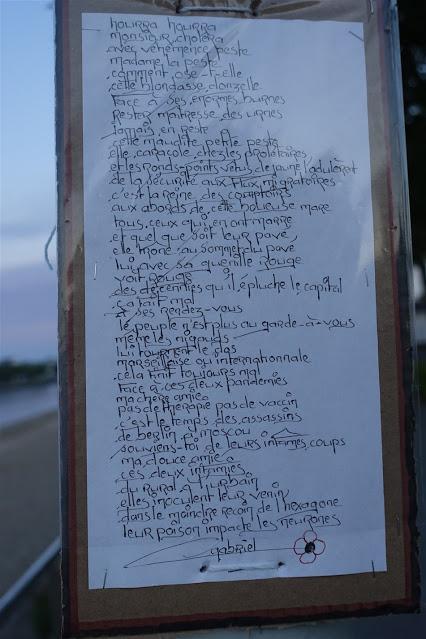 hourra hourra
monsieur choléra
avec véhémence peste
madame la peste
comment ose-t-elle
cette blondasse donzelle
face à ses énormes burnes
rester maîtresse des urnes
jamais en reste
cette maudite petite peste
elle caracole chez les prolétaires
et les ronds-points vêtus de jaune l'adulèrent
de la sécurité aux flux migratoires
c'est la reine des comptoirs
aux abords de cette houleuse mare
tous ceux qui en ont marre
et quel que soit leur pavé
elle trône au sommet du pavé
lui avec sa guenille rouge
voit rouge
des décennies qu'il épluche le capital
ça fait mal
à ses rendez-vous
le peuple n'est plus au garde-à-vous
même les nigauds
lui tournent le dos
marseillaise ou internationnale
cela finit toujours mal
face à ces deux pandémies
ma chère amie
pas de thérapie pas de vaccin
c'est le temps des assassins
de berlin à moscou
souviens-toi de leurs infâmes coups
ma douce amie
ces deux infamies
du rural à l'urbain
elles inoculent leur venin
dans le moindre recoin de l'hexagone
leur poison impacte les neurones
gabriel